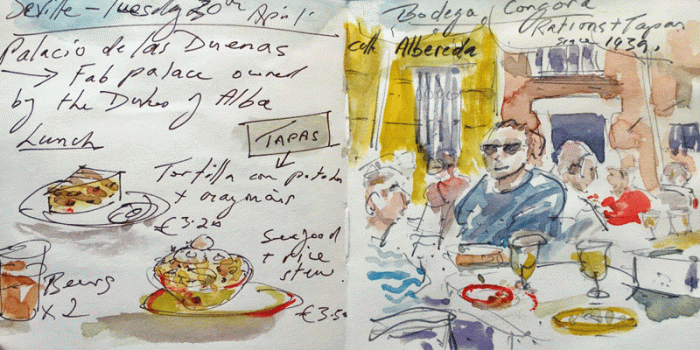 Seville - Tuesday 30th April.
Palacio de las Duenas
→ Fab palace owned
by the Dukes of Alba
Lunch
TAPAS
Tortilla con patata
+
€3.20
Seafood
+ rice
stew.
€3.50
Beers
x 2
Bodega, Gongora
Rations + Tapas
since 1939.
calle Albereda